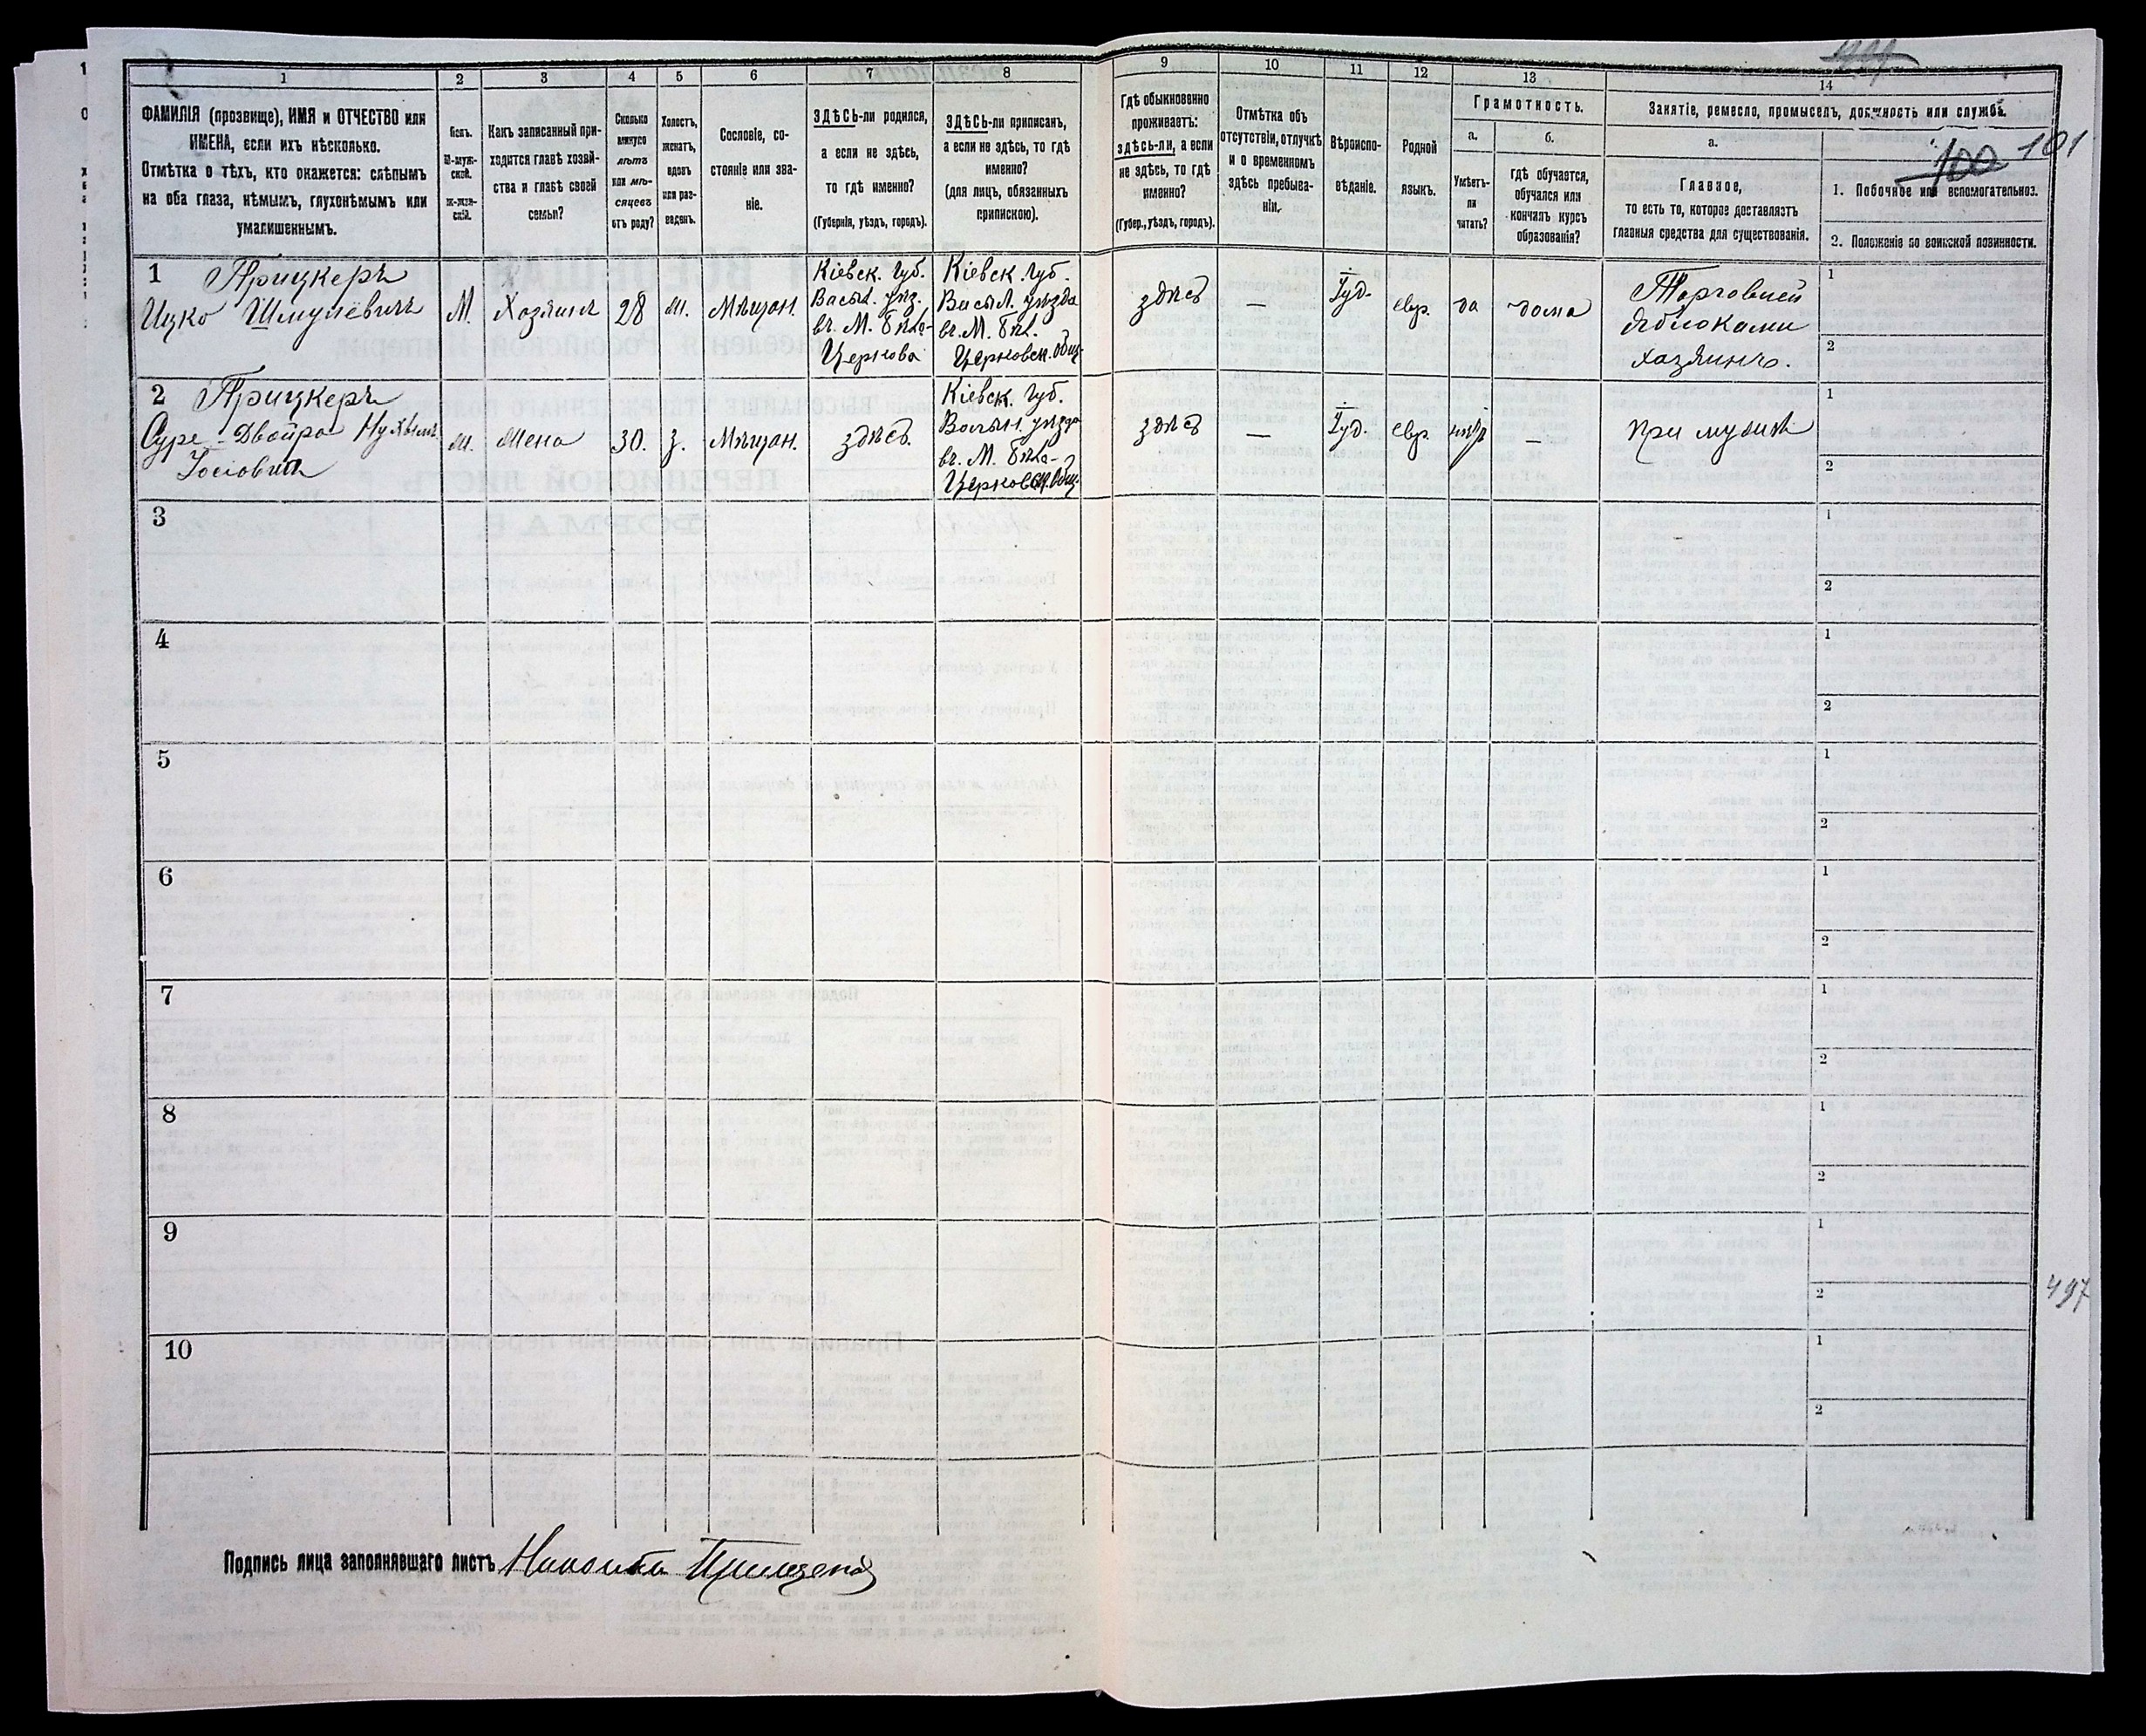 1 2 3 4 5 6 7 8 9 10 11 12 13 14
ФАМИЛІЯ (прозвище), ИМЯ и ОТЧЕСТВО или
ИМЕНА, если ихъ нѣсколько.
Отмѣтка о тѣхъ, кто окажется: слѣпымъ
на оба глаза, нѣмымъ, глухонѣмымъ или
умалишеннымъ.
Полъ.
М-муж-
ской.
Ж-жен-
скій.
Какъ записанный при-
ходится главѣ хозяй-
ства и главѣ своей
семьи?
Сколько
минуло
лѣтъ
или мѣ-
сяцевъ
отъ роду?
Холостъ,
женатъ,
вдовъ
или раз-
веденъ.
Сословіе, со-
стояніе или зва-
ніе.
ЗДѢСЬ-ли родился,
а если не здѣсь,
то гдѣ именно?
(Губернія, уѣздъ, городъ).
ЗДѢСЬ-ли приписанъ,
а если не здѣсь, то гдѣ
именно?
(для лицъ, обязанныхъ
припискою).
Гдѣ обыкновенно
проживаетъ:
здѣсь-ли, а если
не здѣсь, то гдѣ
именно?
(Губер., уѣздъ, городъ).
Отмѣтка объ
отсутствіи, отлучкѣ
и о временномъ
здѣсь пребыва-
ніи.
Вѣроиспо-
вѣданіе.
Родной
языкъ.
Грамотность.
а.
Умѣетъ-
ли
читать?
б.
гдѣ обучается,
обучался или
кончилъ курсъ
образованія?
Занятіе, ремесло, промыселъ, должность или служба.
а.
Главное,
то есть то, которое доставляетъ
главныя средства для существованія.
100 101
1. Побочное или вспомогательное.
2. Положеніе по воинской повинности.
1 Прицкеръ
Ицко Шмулевичъ
М.
Хозяинъ
28
Мѣщан.
Кіевск. Губ.
Васил. уѣз.
въ М. Бѣла-
Церкова
Кіевск. Губ.
Васил. уѣзда
въ М. Бѣл.
Церковск. общ.
здѣсь
—
Іуд.
евр.
да
дома
Торговлей
яблоками
хозяинъ.
1
2
2 Прицкеръ
Суре-Двойра
30.
з.
Мѣщан.
здѣсь
Кіевск. Губ.
въ М. Бѣла-
Церковск. общ.
здѣсь
—
Іуд.
евр.
—
при мужѣ
1
2
3
1
2
4
1
2
5
1
2
6
1
2
7
1
2
8
1
2
9
1
2
497
10
1
2
Подпись лица заполнявшаго листъ